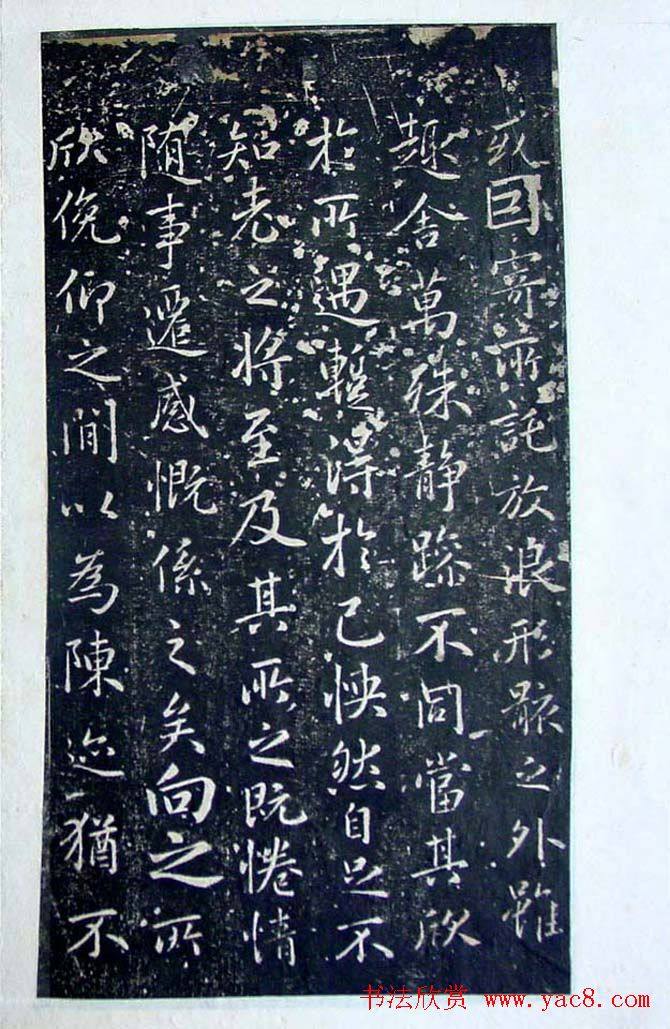 或因寄所託放浪形骸之外雖
趣舍萬殊静躁不同當其欣
於所遇暫得於己怏然自足不
知老之將至及其所之既惓情
随事遷感慨係之矣向之所
欣俛仰之閒以為陳迹猶不
书法欣赏 www.yac8.com